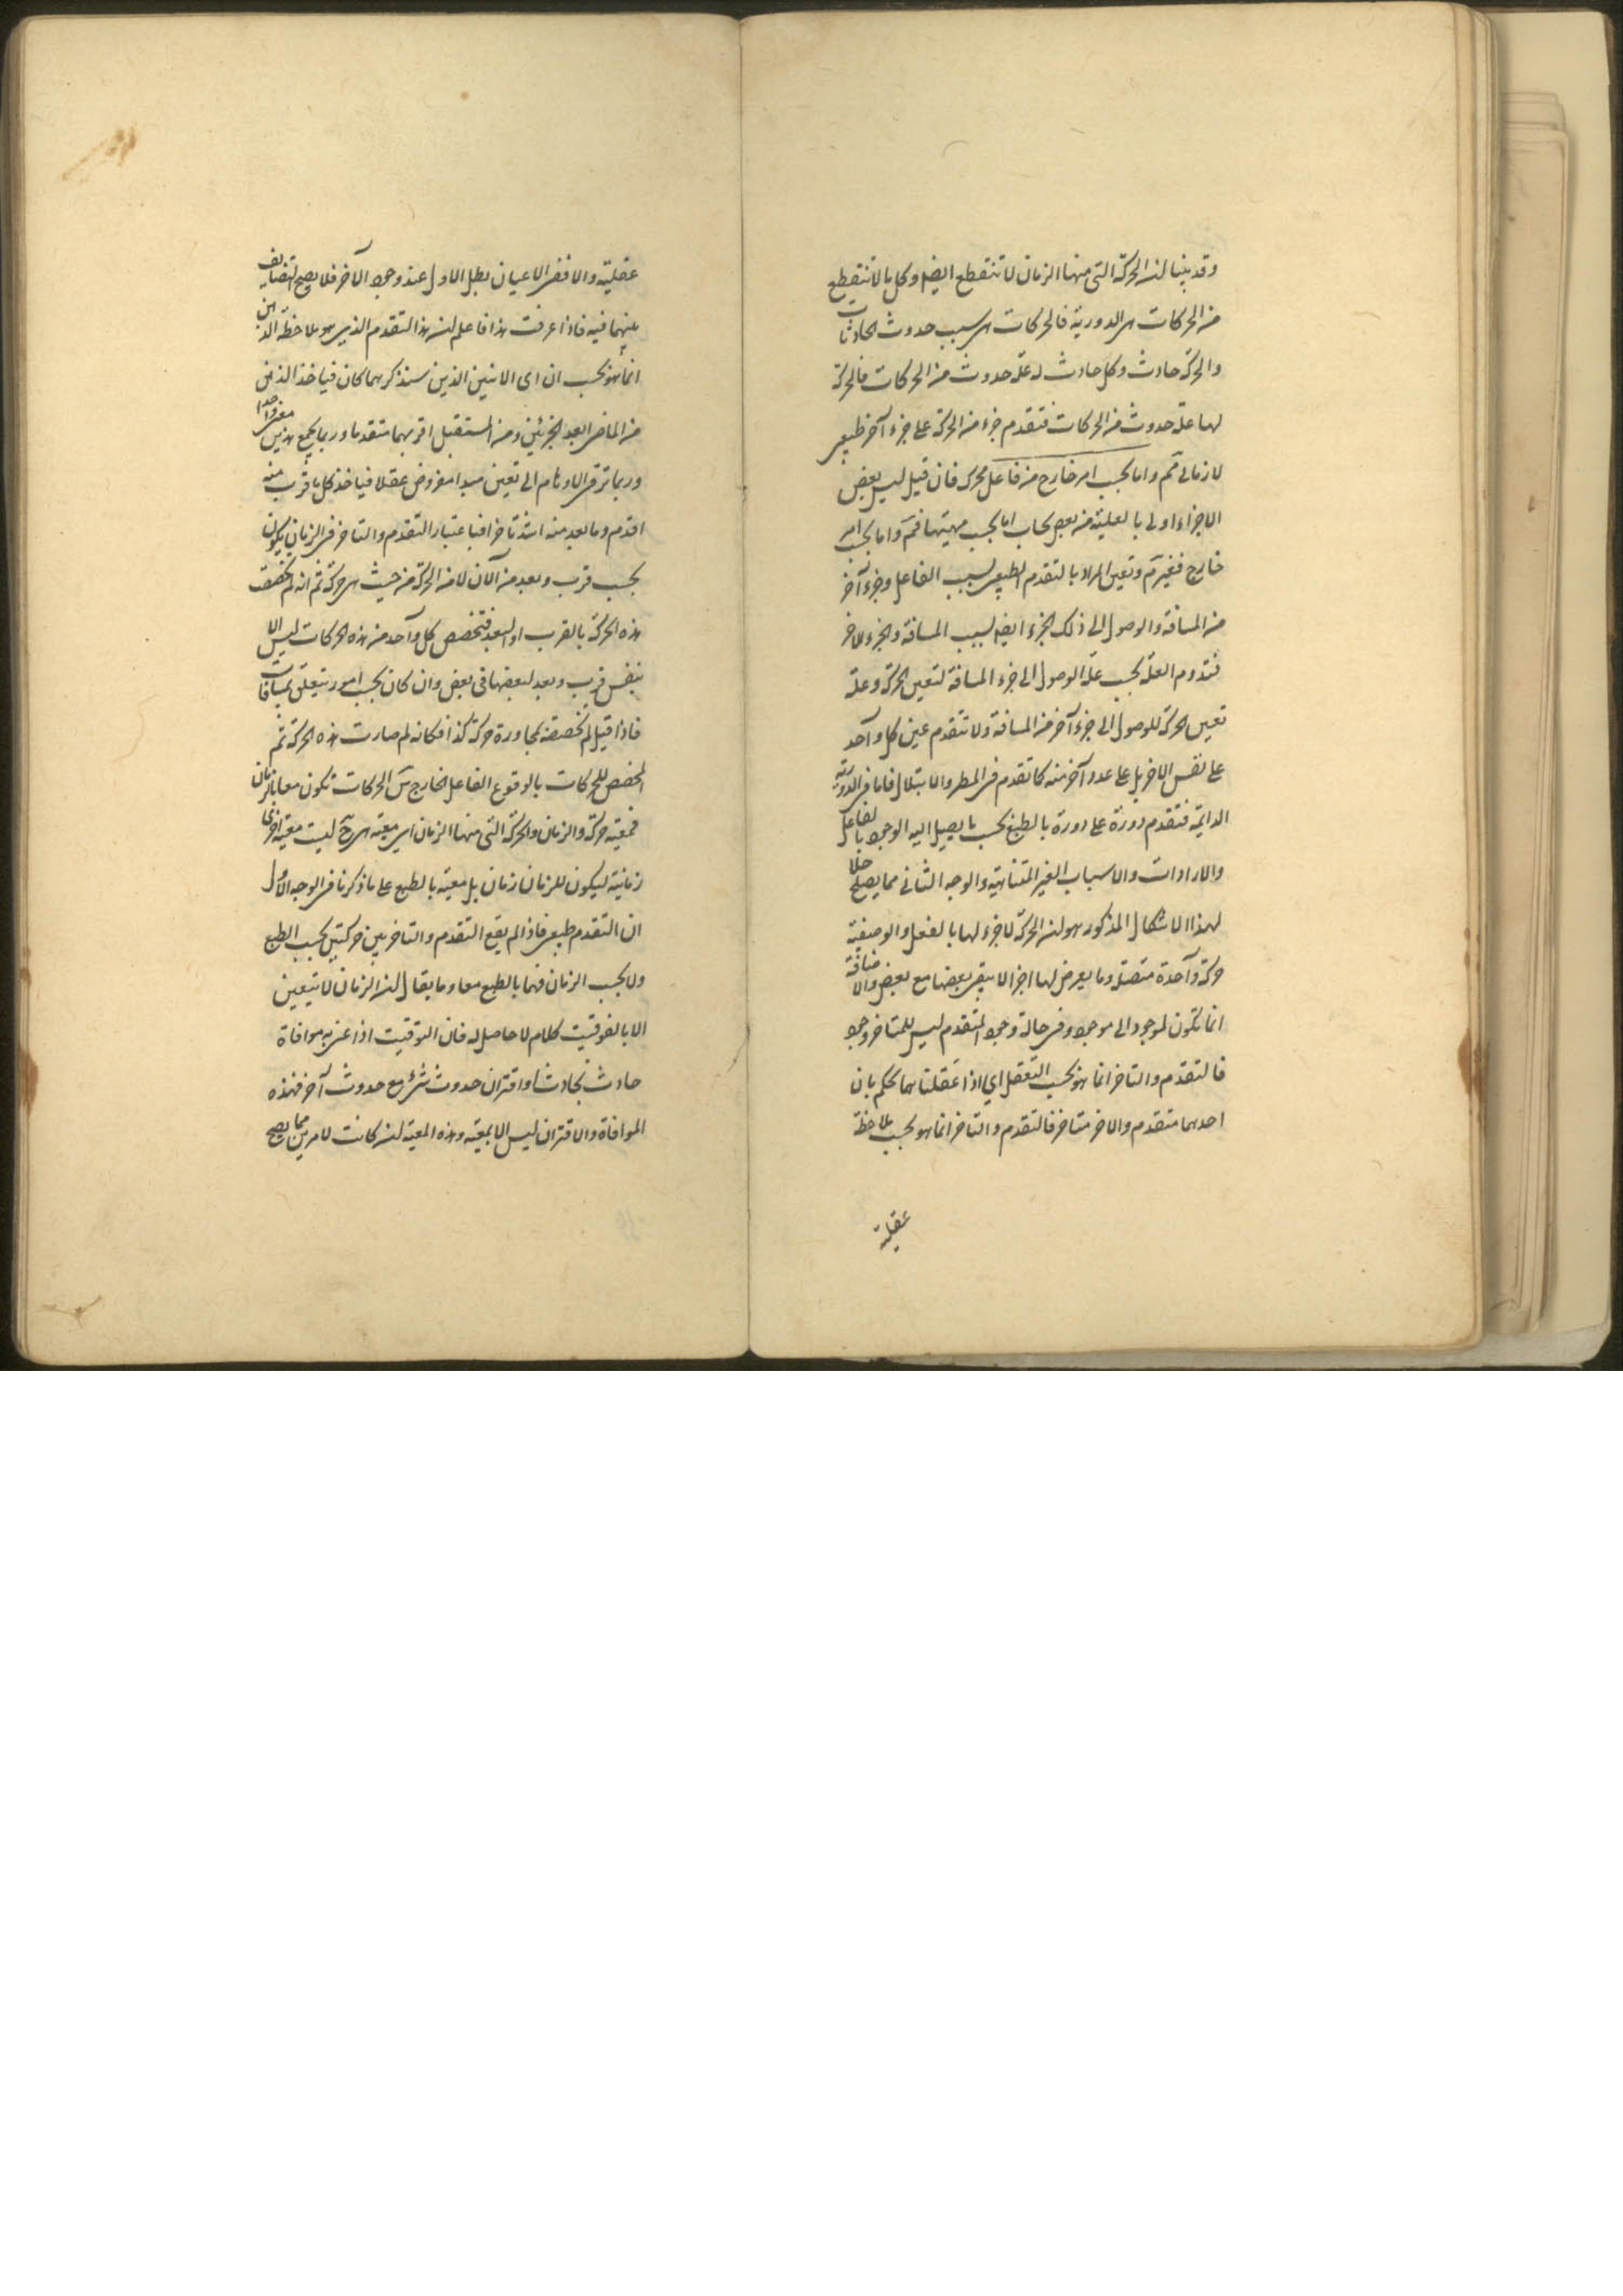 وقد بينا ان الحركة التى منها الزمان لا تنقطع ايضا وكل ما لا تنقطع
من الحركات هى الدورية فالحركات هى سبب حدوث الحادثات
والحركة حادث وكل حادث له علة حدوث من الحركات فالحركة
لها علة حدوث من الحركات فتقدم جزء من الحركة على جزء آخر طبيعى
لا زمانى ثم واما بحسب امر خارج من فاعل محرك فان قيل ليس بعض
الاجزاء اولى بالعلية من بعض يجاب اما بحسب مهيتها فمم واما بحسب امر
خارج فغير مم وتعين المراد بالتقدم الطبيعى بسبب الفاعل وجزء آخر
من المسافة والوصول الى ذلك الجزء ايضا بسبب المسافة والجزء الاخر
فتدوم العلة بحسب علة الوصول الى جزء المسافة لتعين الحركة وعلة
تعين الحركة للوصول الى جزء آخر من المسافة ولا تتقدم عين كل واحد
على نفس الاخر بل على عدد آخر منه كما تقدم فى المطر والابتلال فاما فى الدورية
الدائمة فتقدم دورة على دورة بالطبع بحسب ما يصل اليه الوجود بالفاعل
والارادات والاسباب الغير المتناهية والوجه الثانى مما يصلح حلا
لهذا الاشكال المذكور هو ان الحركة لا جزء لها بالفعل والوصفية
حركة واحدة متصلة وما يعرض لها اجزاء لا يبقى بعضها مع بعض والاضافة
انما تكون لموجود الى موجود وفى حالة وجود المتقدم ليس للمتاخر وجود
فالتقدم والتاخر انما هو بحسب التعقل اي اذا عقلناهما نحكم بان
احدهما متقدم والاخر متاخر فالتقدم والتاخر انما هو بحسب ملاحظة
عقلية
عقلية والا ففى الاعيان بطل الاول عند وجود الآخر فلا يصح التضايف
بينهما فيه فاذا عرفت هذا فاعلم ان هذا التقدم الذى هو بملاحظة الذهن
انما هو بحسب ان اى الانين الذين سنذكرهما كان فياخذ الذهن
من الماضى ابعد الجزئين ومن المستقبل اقربهما متقدما وربما يجمع هذين مفروا حدا
وربما ترقى الاوهام الى تعين مبدا مفروض عقلا فياخذ كل ما قرب منه
اقدم وما بعد منه اشد تاخرا فباعتبار التقدم والتاخر فى الزمان يكون
بحسب قرب وبعد من الآن لا من الحركة من حيث هى حركة ثم انه لم تخصصت
هذه الحركة بالقرب او البعد فتخصص كل واحد من هذه الحركات ليس الا
بنفس قرب وبعد لبعضها فى بعض وان كان بحسب امور يتعلق بمسافات
فاذا قيل لم تخصصت بمجاورة حركة كذا فكانه لم صارت هذه الحركة ثم
المخصص للحركات بالوقوع الفاعل الخارج من الحركات تكون معا بالزمان
فمعية حركة والزمان والحركة التى منها الزمان اى معية هى ح ليست معية اخرى
زمانية ليكون للزمان زمان بل معية بالطبع على ما ذكرنا فى الوجه الأول
ان التقدم طبيعى فاذا لم يقع التقدم والتاخر بين حركتين بحسب الطبع
ولا بحسب الزمان فهما بالطبع معا وما يقال ان الزمان لا يتعين
الا بالتوقيت كلام لا حاصل له فان التوقيت اذا عنى به موافاة
حادث بحادث او اقتران حدوث شئ مع حدوث آخر فهذه
الموافاة والاقتران ليس الا بمعية وهذه المعية ان كانت لامرين مما يصح